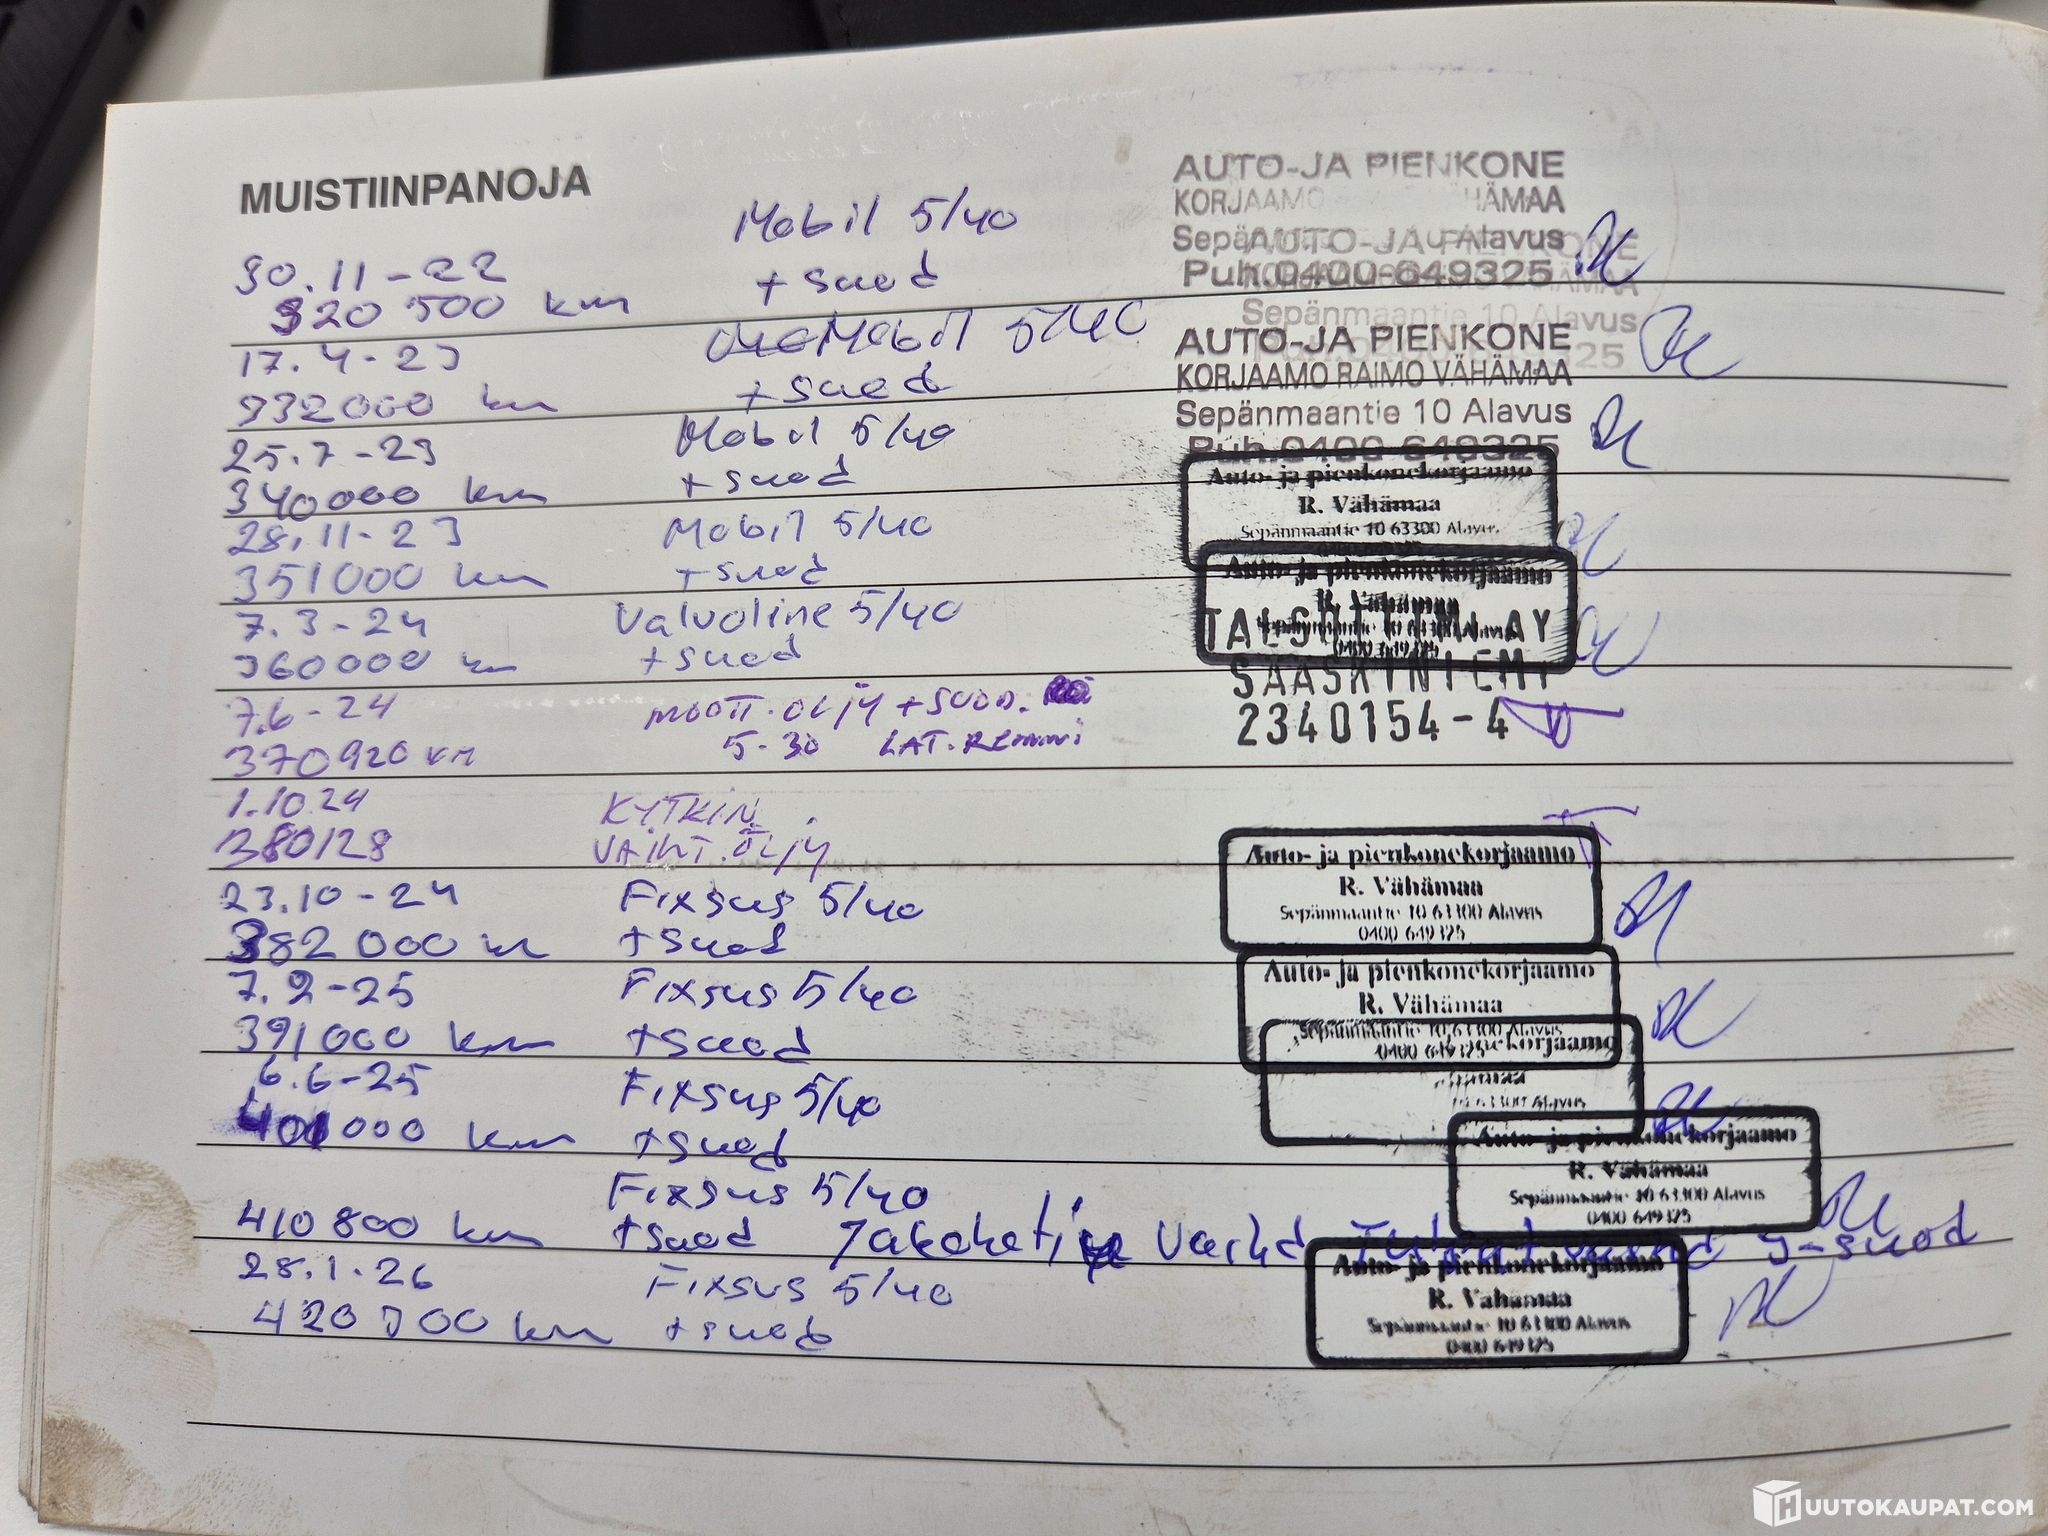 MUISTIINPANOJA
Mobil 5/40
30.11-22
+ suod
320 500 km
AUTO-JA PIENKONE
KORJAAMO VÄHÄMAA
Alavus
Puh.0400-649325
AUTO-JA PIENKONE
Sepänmaantie 10 Alavus
17.4-23
Mobil 5/40
332000 km
+ suod
AUTO-JA PIENKONE
KORJAAMO RAIMO VÄHÄMAA
Sepänmaantie 10 Alavus
Puh.0400-649325
25.7-23
Mobil 5/40
340000 km
+ suod
Auto- ja pienkonekorjaamo
R. Vähämaa
Sepänmaantie 10 63300 Alavus
28.11-23
Mobil 5/40
351000 km
+ suod
Auto- ja pienkonekorjaamo
R. Vähämaa
0400 649325
7.3-24
Valvoline 5/40
360000 km
+ suod
AY
SÄÄSKINIEMI
2340154-4
7.6-24
MOOTT.ÖLJY + SUOD.
370920 KM
5-30 LAT.REMMI
1.10.24
KYTKIN
380128
VAIHT.ÖLJY
Auto- ja pienkonekorjaamo
R. Vähämaa
Sepänmaantie 10 63300 Alavus
0400 649325
23.10-24
Fixsus 5/40
382 000 km
+ suod
Auto- ja pienkonekorjaamo
R. Vähämaa
Sepänmaantie 10 63300 Alavus
0400 649325
7.2-25
Fixsus 5/40
391000 km
+ suod
nekorjaamo
63300 Alavus
6.6-25
Fixsus 5/40
401000 km
+ suod
Auto- ja pienkonekorjaamo
R. Vähämaa
Sepänmaantie 10 63300 Alavus
0400 649325
Fixsus 5/40
410 800 km
+ suod
28.1.26
Fixsus 5/40
420 300 km
+ suod
Auto- ja pienkonekorjaamo
R. Vähämaa
Sepänmaantie 10 63300 Alavus
0400 649325
HUUTOKAUPAT.COM